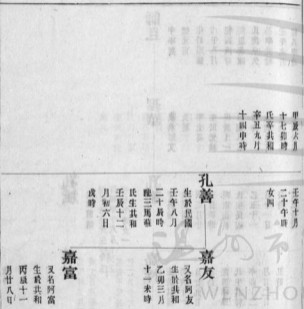 壬午十月
二十午時
女四
甲辰六月
十七卯時
氏卒共和
辛丑九月
十四申時
孔善
生於民國
壬午八月
二十辰時
氏生共和
壬辰十二
月初六日
戌時
嘉友
又名阿友
生於共和
乙卯三月
十一未時
嘉富
又名阿富
生於共和
丙辰十一
月廿八日
温州市
WENZHO